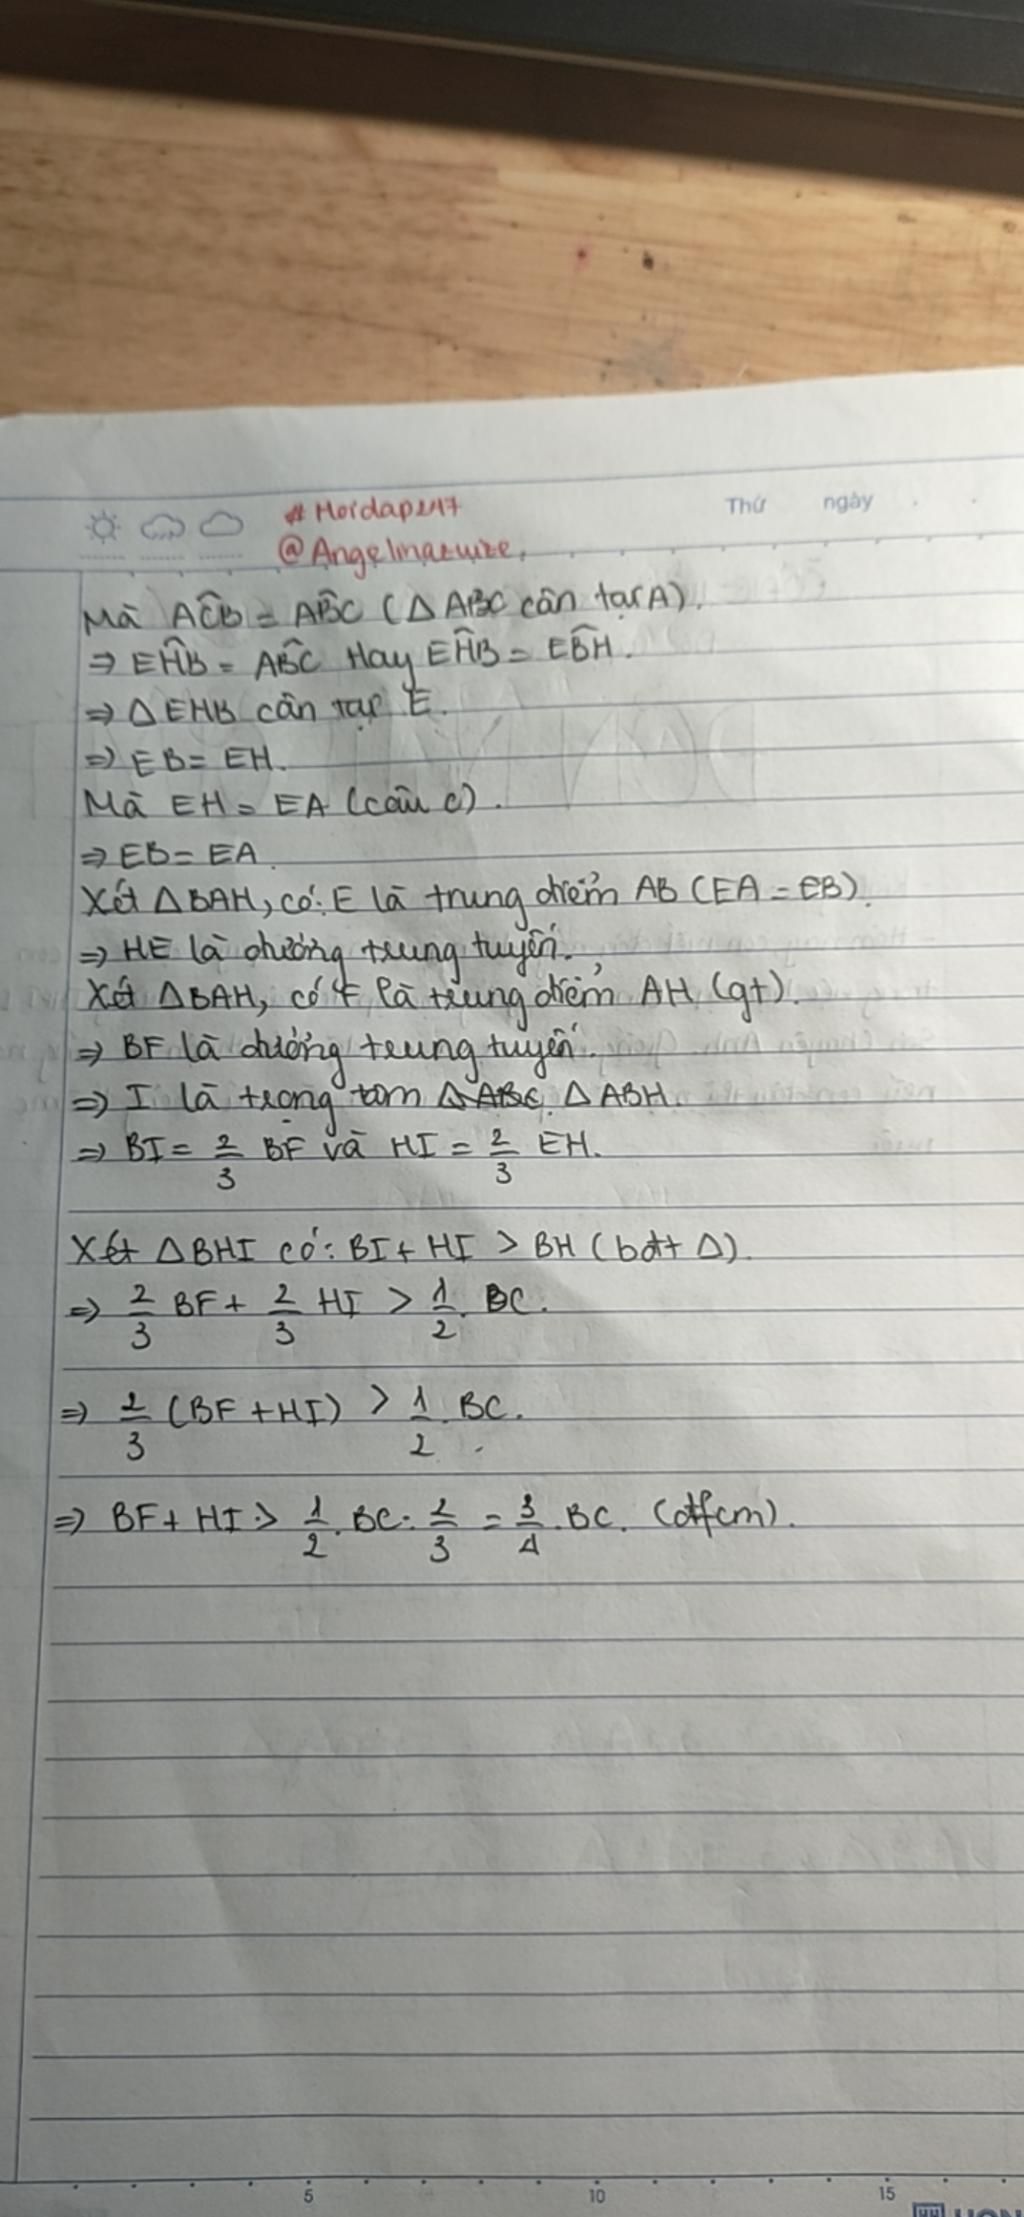 Thứ ngày
#Hoidap247
@Angelinazuize
Mà AĈB = AB̂C (△ ABC cân tại A).
⇒ EĤB = AB̂C Hay EĤB = EB̂H.
⇒ △ EHB cân tại E.
⇒ EB = EH.
Mà EH = EA (câu c).
⇒ EB = EA.
Xét △BAH, có: E là trung điểm AB (EA = EB).
⇒ HE là đường trung tuyến.
Xét △BAH, có F là trung điểm AH (gt).
⇒ BF là đường trung tuyến.
⇒ I là trọng tâm △ABC. △ ABH.
⇒ BI = 2/3 BF và HI = 2/3 EH.
Xét △BHI có: BI + HI > BH (bđt △).
⇒ 2/3 BF + 2/3 HI > 1/2. BC.
⇒ 2/3 (BF + HI) > 1/2. BC.
⇒ BF + HI > 1/2. BC : 2/3 = 3/4. BC. (đfcm).
5 10 15